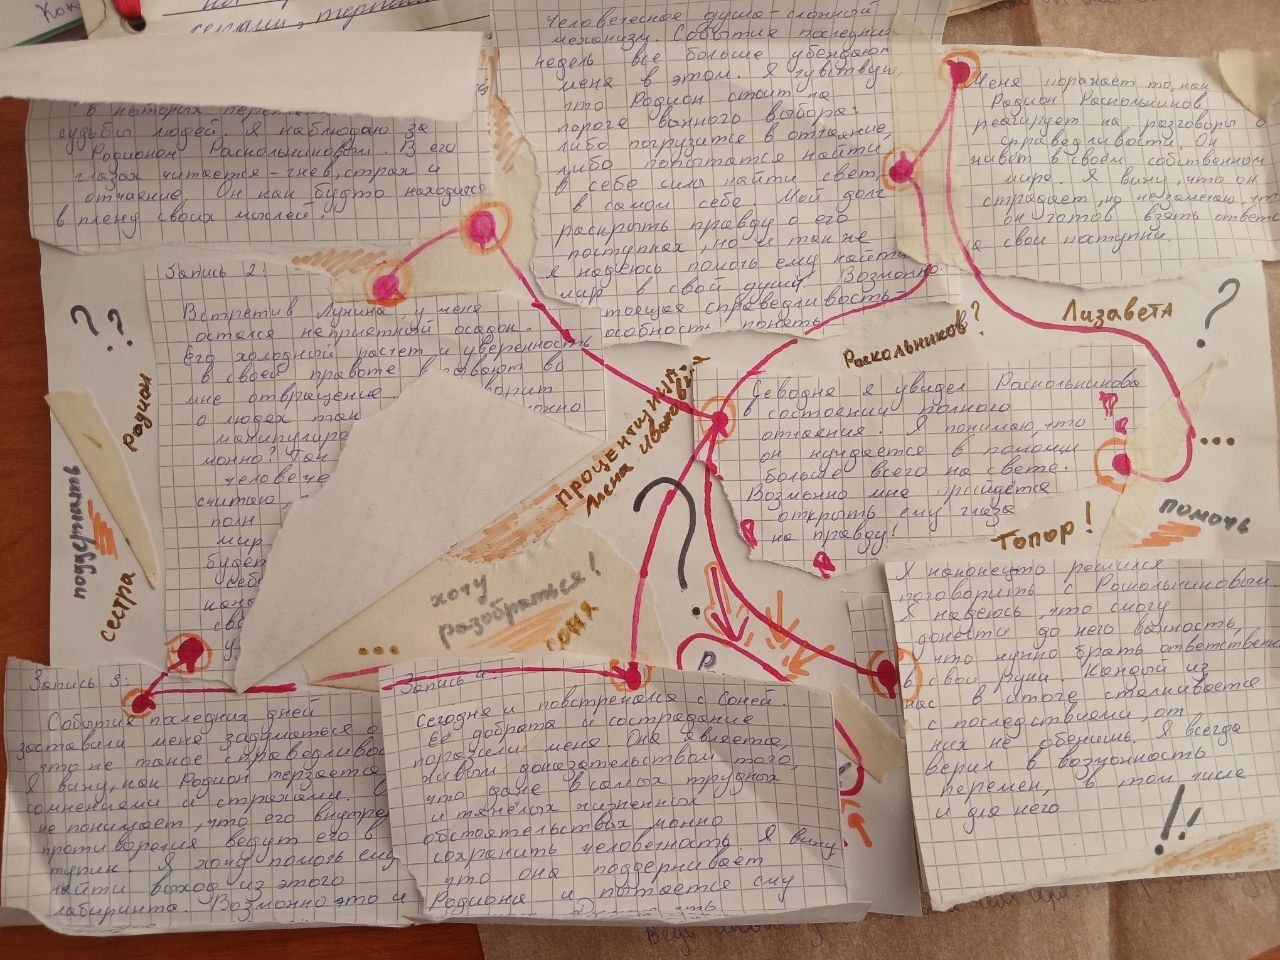 судьбы людей. Я наблюдаю за
Родионом Раскольниковым. В его
глазах читается - гнев, страх и
отчаяние. Он как будто находится
в плену своих мыслей!
Человеческая душа - сложный
механизм. События последних
недель все больше убеждают
меня в этом. Я чувствую,
что Родион стоит на
пороге важного выбора:
либо погрузится в отчаяние,
либо попытатся найти
в себе силы найти свет,
в самом себе. Мой долг
раскрыть правду о его
поступках, но и так же
я надеюсь помочь ему найти
мир в свой душе. Возможно
стоящая справедливость -
особность понять
Меня поражает то, как
Родион Раскольников
реагирует на разговоры о
справедливости. Он
живет в своем собственном
мире. Я вижу, что он
страдает, но не замечаю, чт
он готов взять ответс
на свои поступки.
Запись 2:
Встретив Лужина, у меня
остался неприятный осадок.
Его холодный расчет и уверенность
в своей правоте вызывают во
мне отвращение.
о людях так
манипулиро
можно? Так
человече
считаю,
полн
мир
будет
себе
??
Родион
поддержать
сестра
процентщица
Алена Ивановна
хочу
разобраться!
Соня
...
?
Раскольников?
Лизавета
?
...
Сегодня я увидел Раскольникова
в состоянии полного
отчаения. Я понимаю, что
он нуждается в помощи
больше всего на свете.
Возможно мне прийдется
открыть ему глаза
на правду!
Топор!
помочь
Р
Я наконец-то решился
поговорить с Раскольниковым.
Я надеюсь, что смогу
донести до него важность,
что нужно брать ответственн
в свои руки. Каждый из
нас в итоге сталкивается
с последствиями, от
них не убежишь. Я всегда
верил в возможность
перемен, в том числе
и для него
!!
Запись 3:
События последних дней
заставили меня задуматься о
что же такое справедливос
Я вижу, как Родион терзается
сомнениями и страхами. О
не понимает, что его внутре
противоречия ведут его в
тупик. Я хочу помочь ему
найти выход из этого
лабиринта. Возможно это и
Запись 4:
Сегодня я повстречался с Соней.
Её доброта и сострадание
поразили меня. Она является,
живым доказательством того,
что даже в самых трудных
и тяжёлых жизненных
обстоятельствах можно
сохранить человечность. Я вижу
что она поддерживает
Родиона и пытается ему